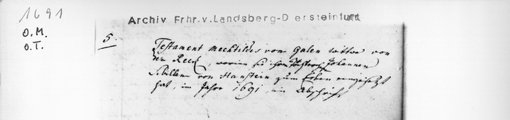 1691
O.M.
O.T.
Archiv Frhr.v.Landsberg-D ersteinfurt
5.
Testament Mechtildes von Galen witwe von
der Reck, worin sie ihre Johannen
Sibillen von Hanstein zum Erben eingesetzt
hat, im Jahre 1691, in Abschrift